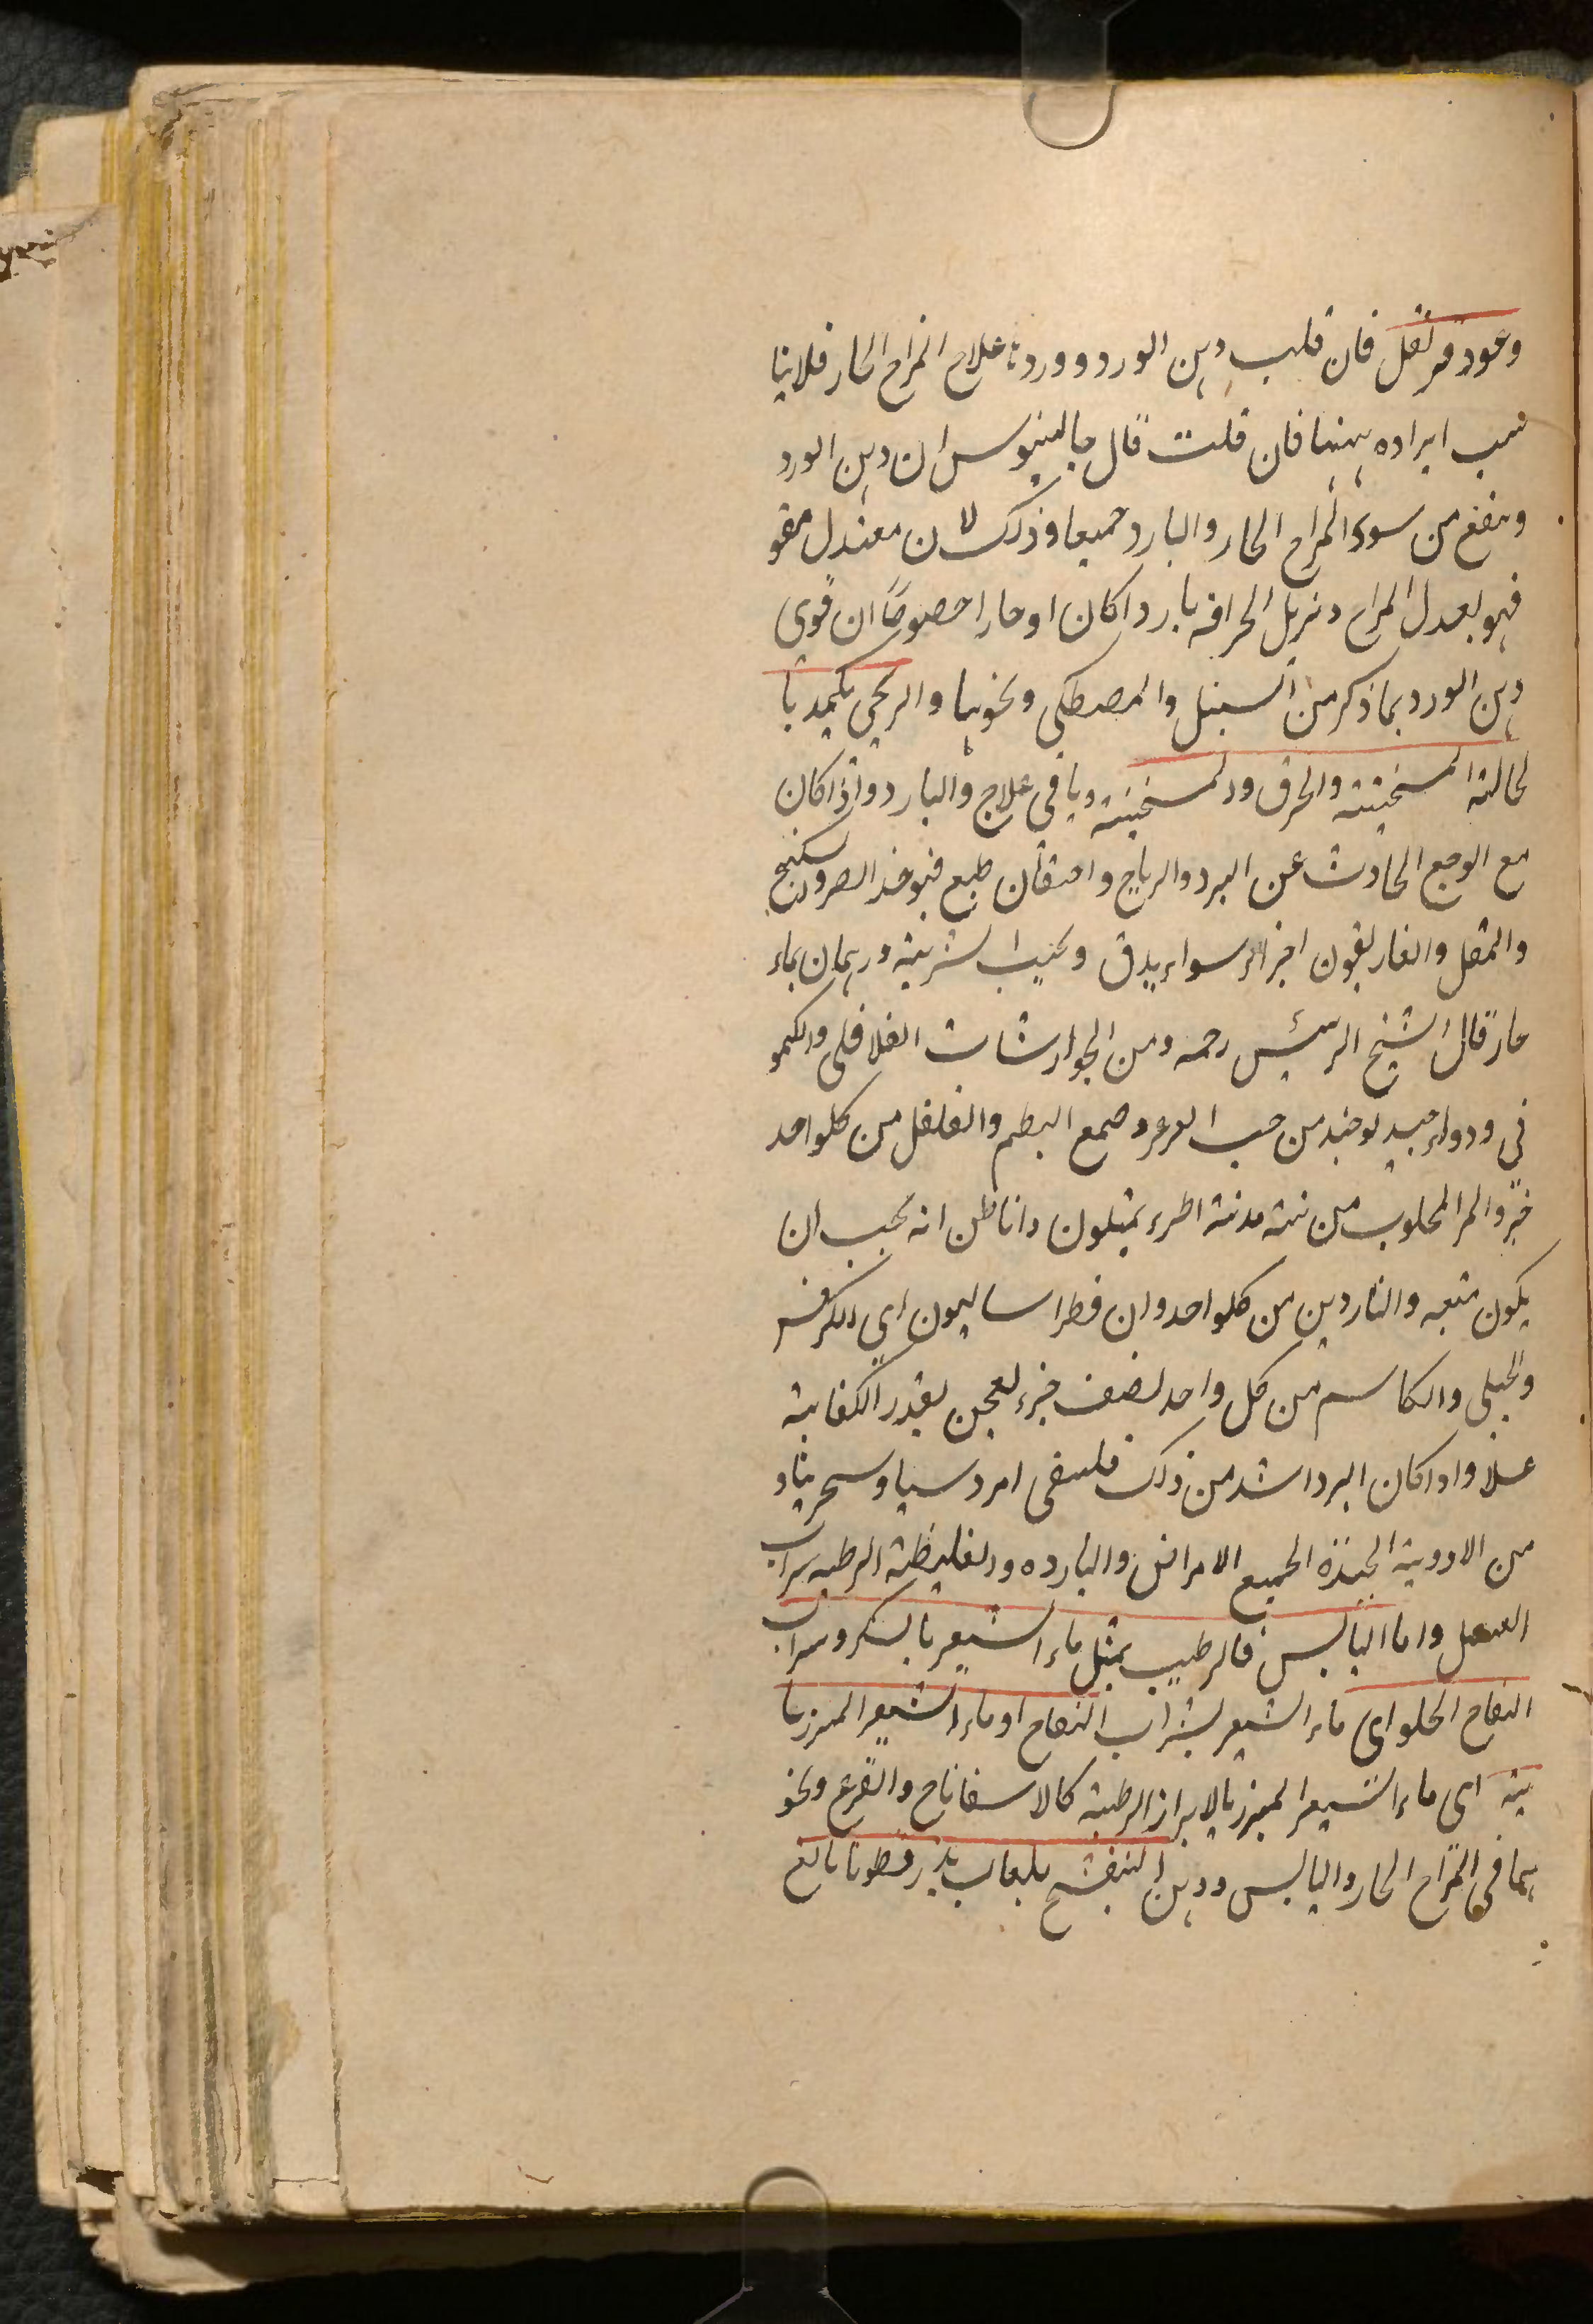 وعود قرنفل فان قلت دهن الورد ورد فى علاج المزاج الحار فلاينا
سب ايراده ههنا فان قلت قال جالينوس ان دهن الورد
وينفع من سوء المزاج الحار والبارد جميعا وذلك لان معتدل مقو
فهو يعدل المزاج ويزيل الحرافه باردا كان او حارا خصوصًا ان قوى
دهن الورد بما ذكر من السنبل والمصطكى ونحوها والريحى يكمد با
لحالة المسخنته والخرق والمسخنته وباقى علاج والبارد واذا كان
مع الوجع الحادث عن البرد والرياح واحتقان طبع فيوخذ الصبر والسكنبج
والمقل والغاريقون اجزاء سواء يدق ويحبب الشربة درهمان بماء
حار قال الشيخ الرئيس رحمه ومن الجوارشات الفلافلى والكمو
نى ودواء جيد يوخذ من حب العرعر وصمغ البطم والفلفل من كلواحد
جزء والمر المحلوب من اطرء يمثلون وانا اظن انه يجب ان
يكون متعه والناردين من كلواحد وان فطراساليون اى الكرفس
والجبلى والكاسم من كل واحد نصف جزء يعجن بقدر الكفاية
عسلا واذا كان البرد اشد من ذلك فليسقى امروسيا وسجرينا و
من الادوية الجيذة الجميع الامراض والبارده والغليظة الرطبه شراب
العسل واما اليابس فالرطيب بمثل ماء الشعير بالسكر وشراب
التفاح الحلو اى ماء الشعير بشراب التفاح او ماء الشعير المبزر با
ينه اى ماء الشعير المبزر بالابراز الرطبة كالاسفاناخ والقرع ونحو
هما فى المزاج الحار واليابس ودهن البنفشج بلعاب بذر قطونا نافع